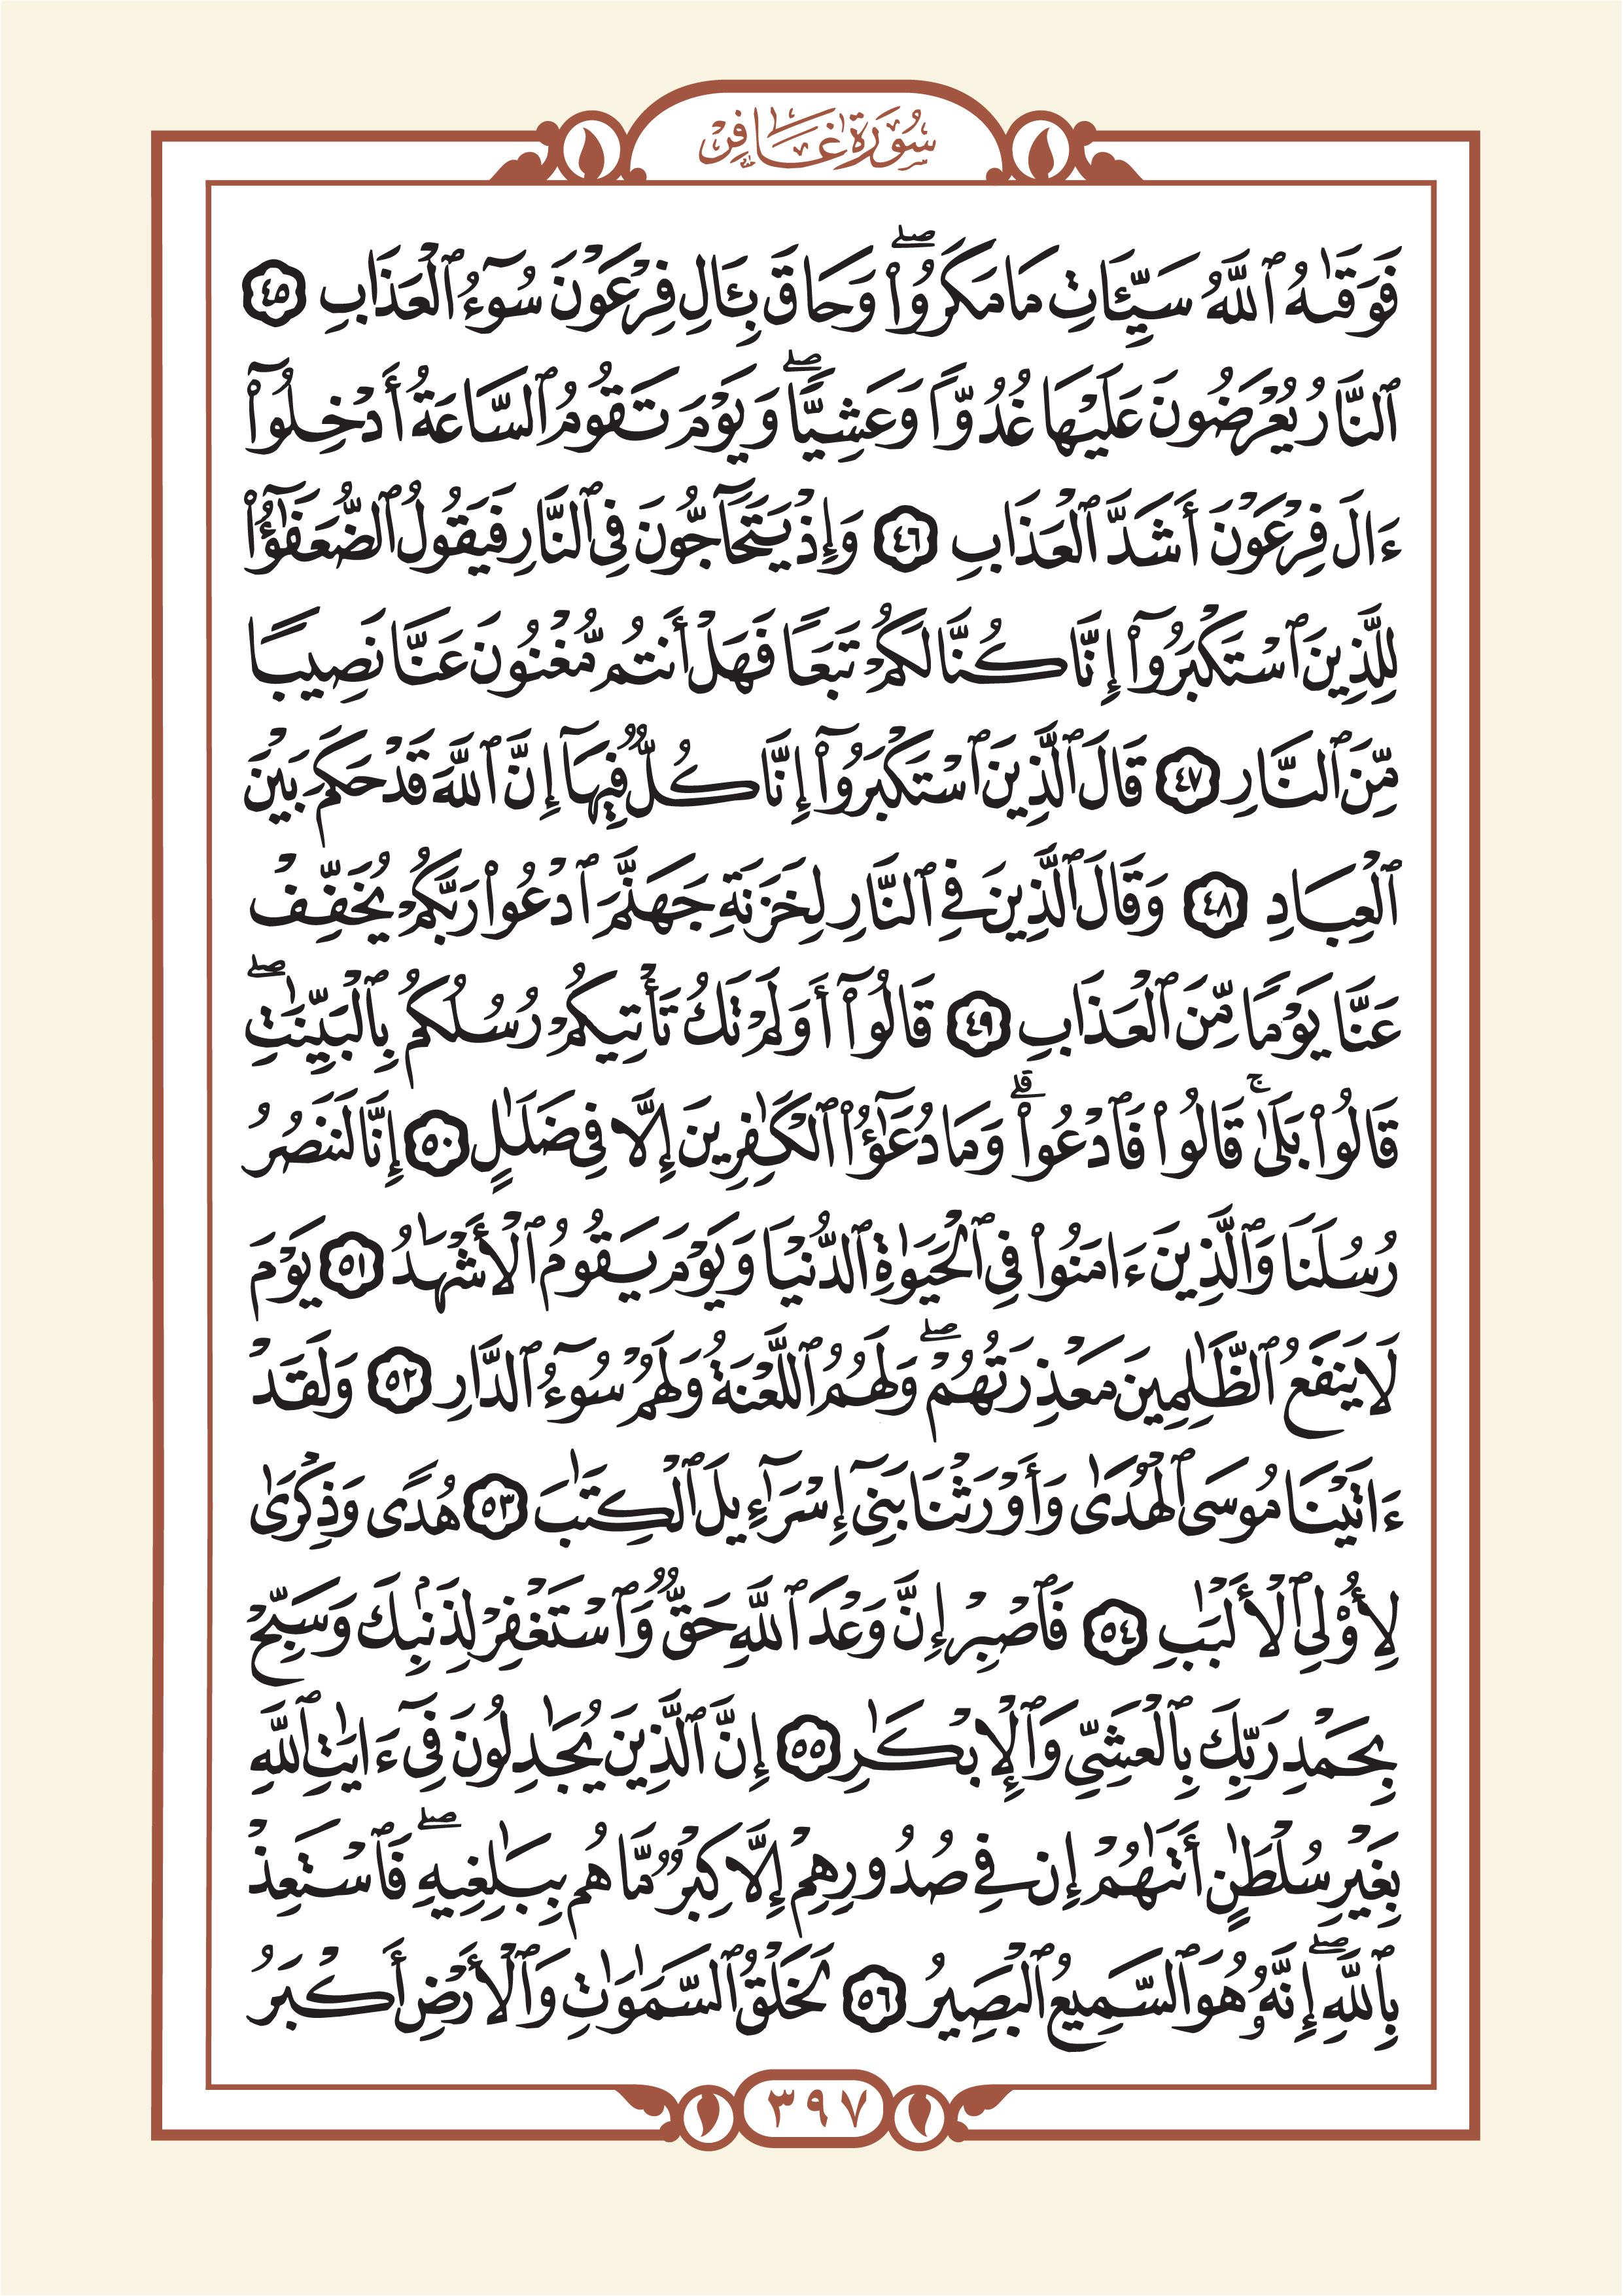 سُورَةُ غَافِرٍ
فَوَقَىٰهُ ٱللَّهُ سَيِّـَٔاتِ مَا مَكَرُوا۟ ۖ وَحَاقَ بِـَٔالِ فِرْعَوْنَ سُوٓءُ ٱلْعَذَابِ ٤٥
ٱلنَّارُ يُعْرَضُونَ عَلَيْهَا غُدُوًّا وَعَشِيًّا ۖ وَيَوْمَ تَقُومُ ٱلسَّاعَةُ أَدْخِلُوٓا۟
ءَالَ فِرْعَوْنَ أَشَدَّ ٱلْعَذَابِ ٤٦ وَإِذْ يَتَحَآجُّونَ فِى ٱلنَّارِ فَيَقُولُ ٱلضُّعَفَـٰٓؤُا۟
لِلَّذِينَ ٱسْتَكْبَرُوٓا۟ إِنَّا كُنَّا لَكُمْ تَبَعًا فَهَلْ أَنتُم مُّغْنُونَ عَنَّا نَصِيبًا
مِّنَ ٱلنَّارِ ٤٧ قَالَ ٱلَّذِينَ ٱسْتَكْبَرُوٓا۟ إِنَّا كُلٌّ فِيهَآ إِنَّ ٱللَّهَ قَدْ حَكَمَ بَيْنَ
ٱلْعِبَادِ ٤٨ وَقَالَ ٱلَّذِينَ فِى ٱلنَّارِ لِخَزَنَةِ جَهَنَّمَ ٱدْعُوا۟ رَبَّكُمْ يُخَفِّفْ
عَنَّا يَوْمًا مِّنَ ٱلْعَذَابِ ٤٩ قَالُوٓا۟ أَوَلَمْ تَكُ تَأْتِيكُمْ رُسُلُكُم بِٱلْبَيِّنَـٰتِ ۖ
قَالُوا۟ بَلَىٰ ۚ قَالُوا۟ فَٱدْعُوا۟ ۗ وَمَا دُعَـٰٓؤُا۟ ٱلْكَـٰفِرِينَ إِلَّا فِى ضَلَـٰلٍ ٥٠ إِنَّا لَنَنصُرُ
رُسُلَنَا وَٱلَّذِينَ ءَامَنُوا۟ فِى ٱلْحَيَوٰةِ ٱلدُّنْيَا وَيَوْمَ يَقُومُ ٱلْأَشْهَـٰدُ ٥١ يَوْمَ
لَا يَنفَعُ ٱلظَّـٰلِمِينَ مَعْذِرَتُهُمْ ۖ وَلَهُمُ ٱللَّعْنَةُ وَلَهُمْ سُوٓءُ ٱلدَّارِ ٥٢ وَلَقَدْ
ءَاتَيْنَا مُوسَى ٱلْهُدَىٰ وَأَوْرَثْنَا بَنِىٓ إِسْرَٰٓءِيلَ ٱلْكِتَـٰبَ ٥٣ هُدًى وَذِكْرَىٰ
لِأُو۟لِى ٱلْأَلْبَـٰبِ ٥٤ فَٱصْبِرْ إِنَّ وَعْدَ ٱللَّهِ حَقٌّ وَٱسْتَغْفِرْ لِذَنۢبِكَ وَسَبِّحْ
بِحَمْدِ رَبِّكَ بِٱلْعَشِىِّ وَٱلْإِبْكَـٰرِ ٥٥ إِنَّ ٱلَّذِينَ يُجَـٰدِلُونَ فِىٓ ءَايَـٰتِ ٱللَّهِ
بِغَيْرِ سُلْطَـٰنٍ أَتَىٰهُمْ إِن فِى صُدُورِهِمْ إِلَّا كِبْرٌ مَّا هُم بِبَـٰلِغِيهِ ۖ فَٱسْتَعِذْ
بِٱللَّهِ ۖ إِنَّهُۥ هُوَ ٱلسَّمِيعُ ٱلْبَصِيرُ ٥٦ لَخَلْقُ ٱلسَّمَـٰوَٰتِ وَٱلْأَرْضِ أَكْبَرُ
٣٩٧